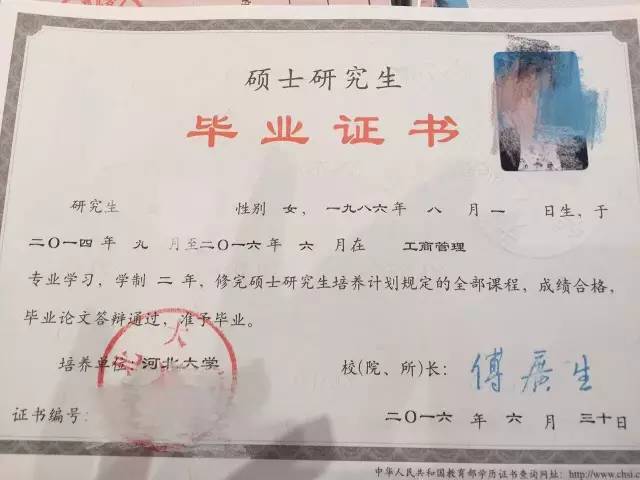 硕士研究生
毕业证书
研究生 性别 女，一九八六年 八 月 一 日生，于
二〇一四年 九 月至二〇一六年 六 月在 工商管理
专业学习，学制 二 年，修完硕士研究生培养计划规定的全部课程，成绩合格，
毕业论文答辩通过，准予毕业。
培养单位 河北大学
校(院、所)长： 傅廣生
证书编号：
二〇一六 年 六 月 三十日
中华人民共和国教育部学历证书查询网址：http://www.chsi.c